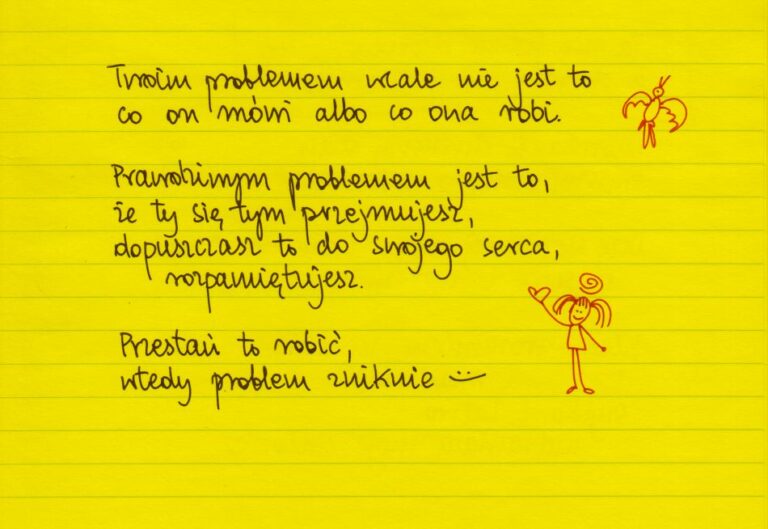 Twoim problemem wcale nie jest to
co on mówi albo co ona robi.
Prawdziwym problemem jest to,
że ty się tym przejmujesz,
dopuszczasz to do swojego serca,
rozpamiętujesz.
Przestań to robić,
wtedy problem zniknie